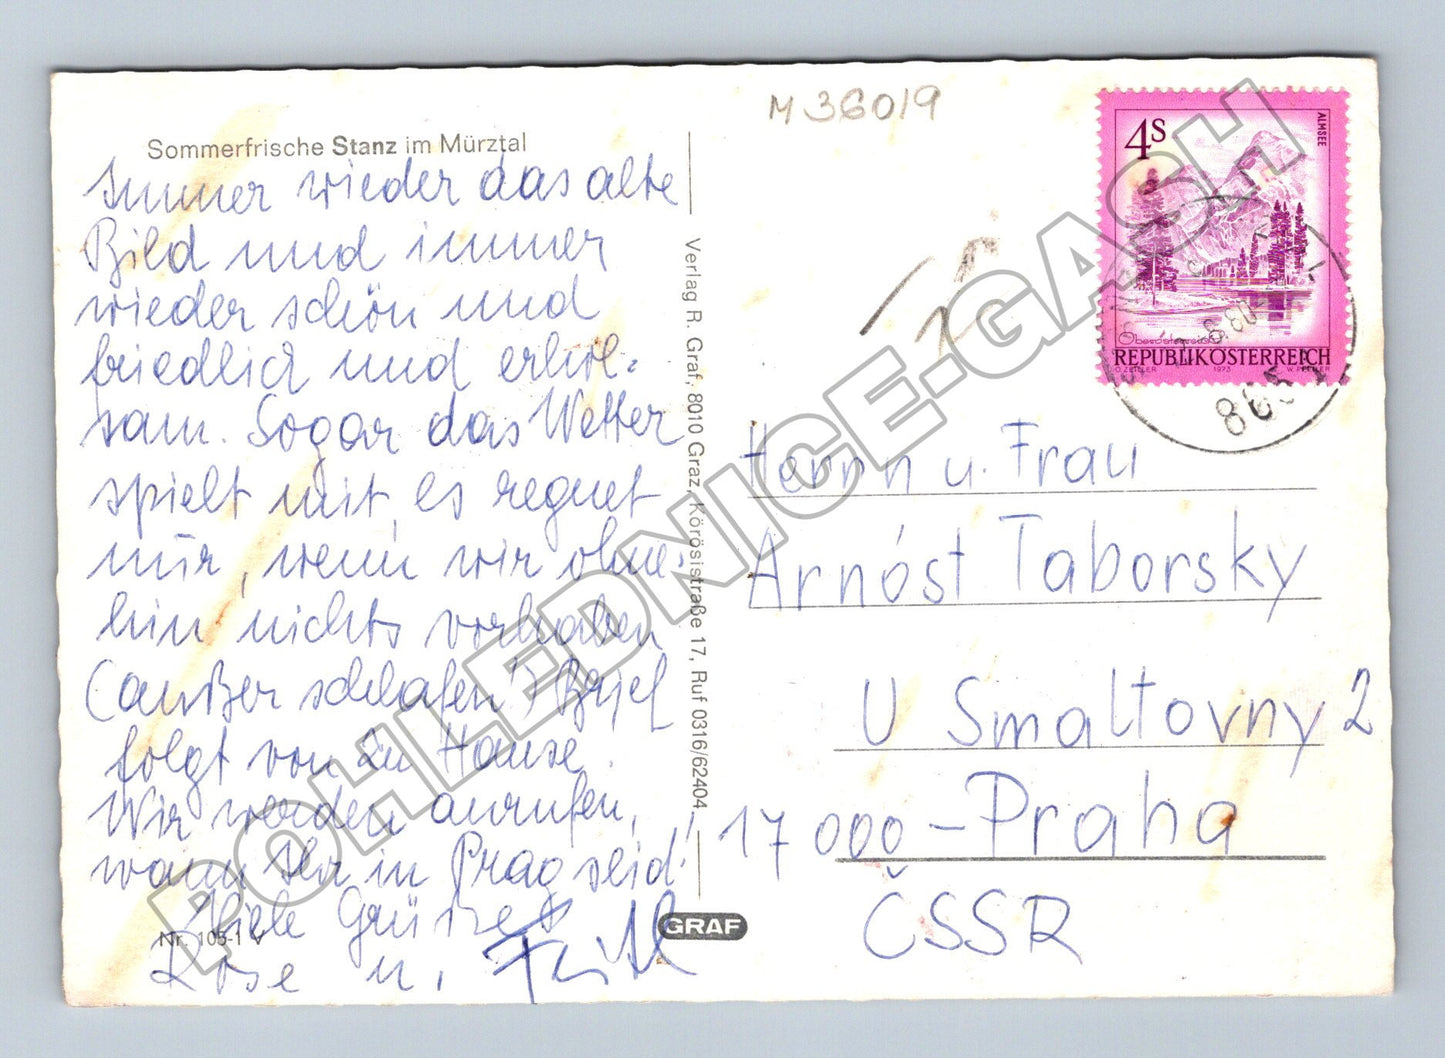 Sommerfrische Stanz im Mürztal
Immer wieder das alte
Bild und immer
wieder schön und
friedlich und erhol-
sam. Sogar das Wetter
spielt mit, es regnet
nur, wenn wir ohne-
hin nichts vorhaben
(außer schlafen) Brief
folgt von zu Hause.
Wir werden anrufen,
wann Ihr in Prag seid!
Viele Grüße
Rose u.
Nr. 105-1 V
Verlag R. Graf, 8010 Graz, Körösistraße 17, Ruf 0316/62404
GRAF
M 36019
4S
ALMSEE
Oberösterreich
REPUBLIK ÖSTERREICH
O. ZEILLER 1973 W. PFEILER
Herrn u. Frau
Arnóst Taborsky
U Smaltovny 2
17 000 - Praha
ČSSR
POHLEDNICE-GASH